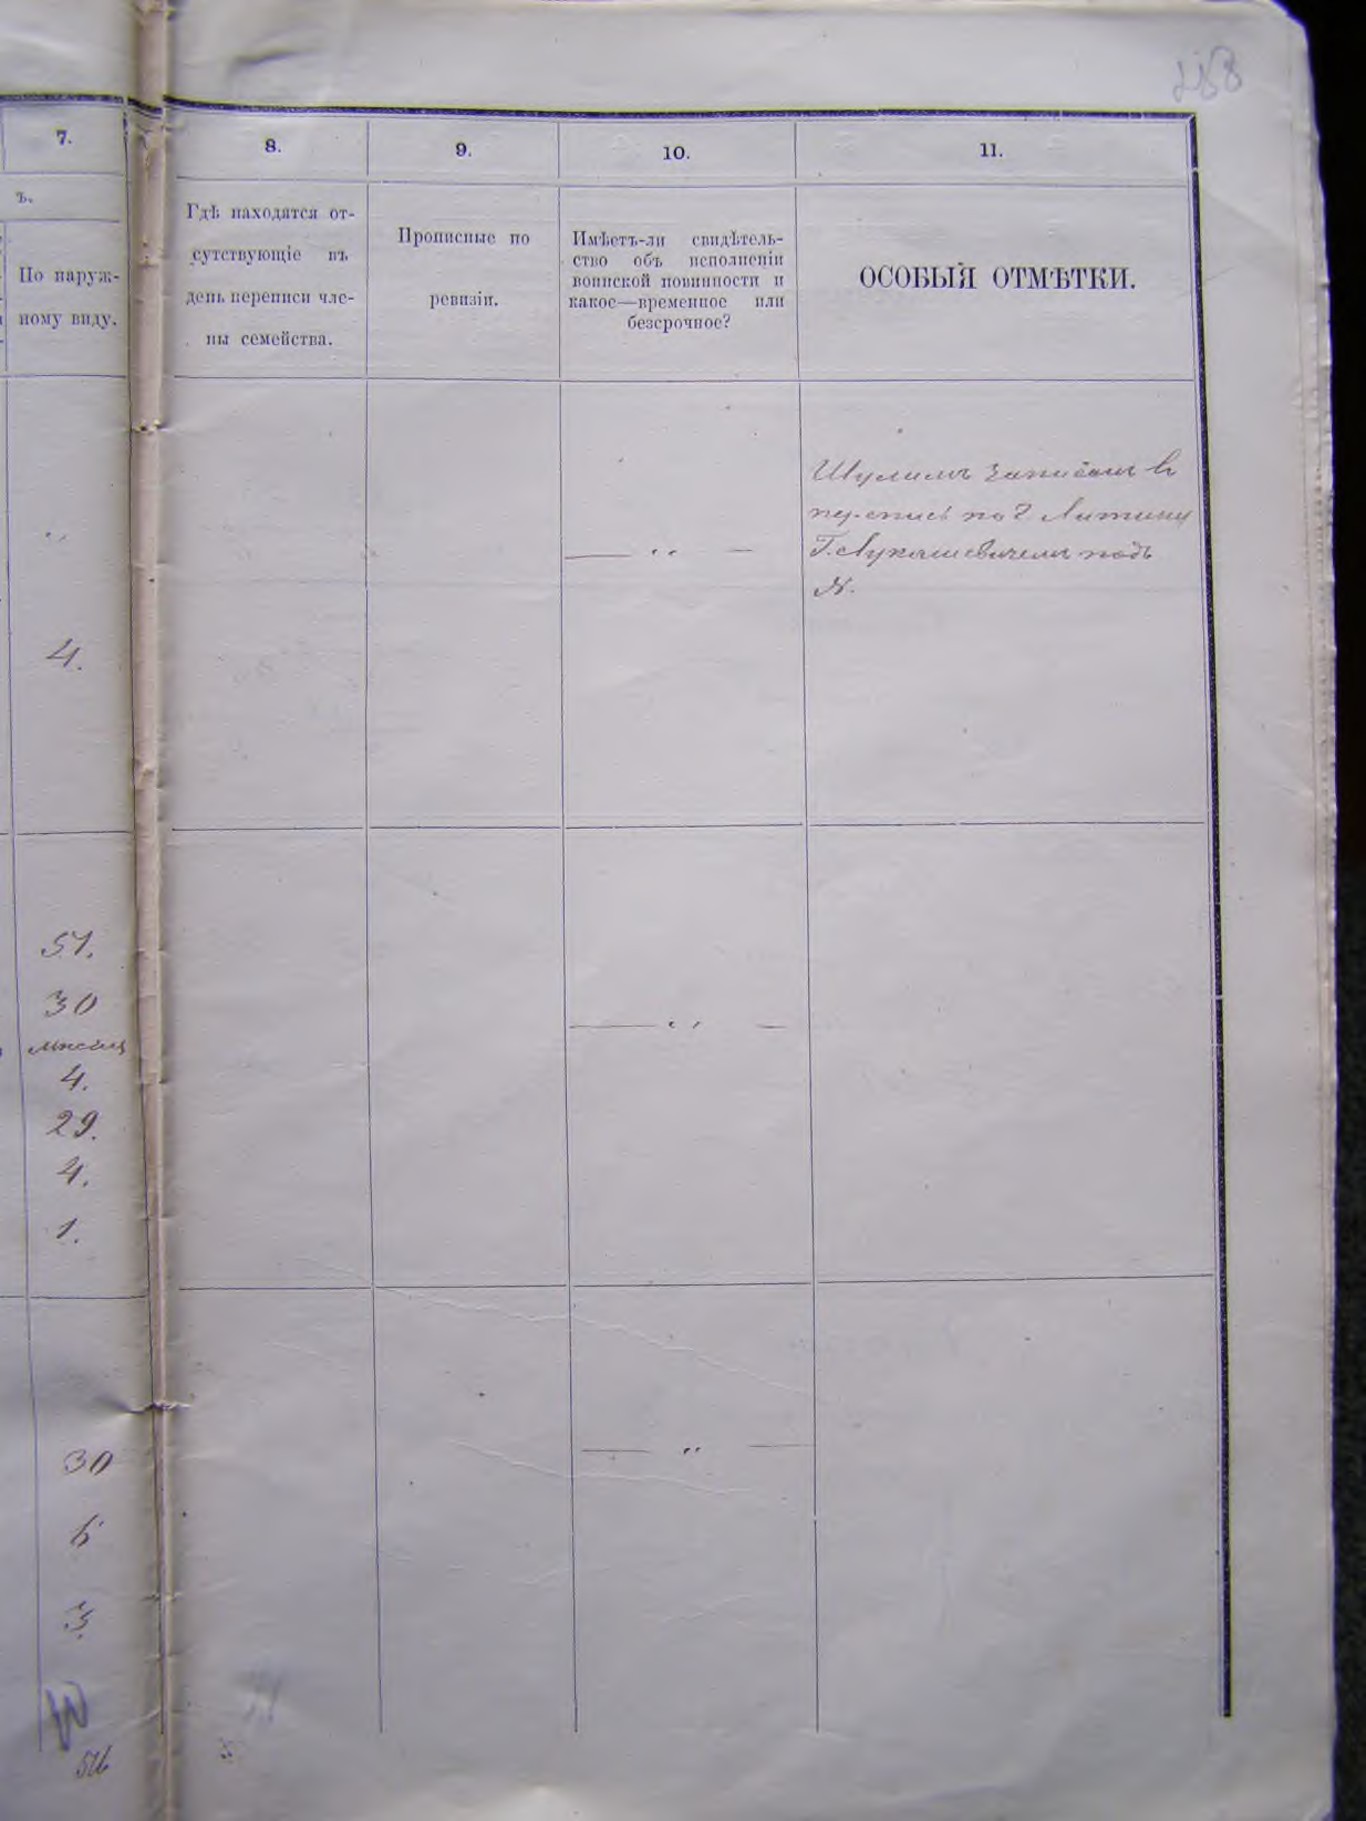 7.
8.
9.
10.
11.
ъ.
По наруж-
ному виду.
Гдѣ находятся от-
сутствующіе въ
день переписи чле-
ны семейства.
Прописные по
ревизіи.
Имѣетъ-ли свидѣтель-
ство объ исполненіи
воинской повинности и
какое—временное или
безсрочное?
ОСОБЫЯ ОТМѢТКИ.
Шулимъ записанъ въ
перепись по г. Литину
Г. Лукашевичемъ подъ
№.
— „ —
„
4.
51.
30
4.
29.
4.
1.
— „ —
30
3
— „ —